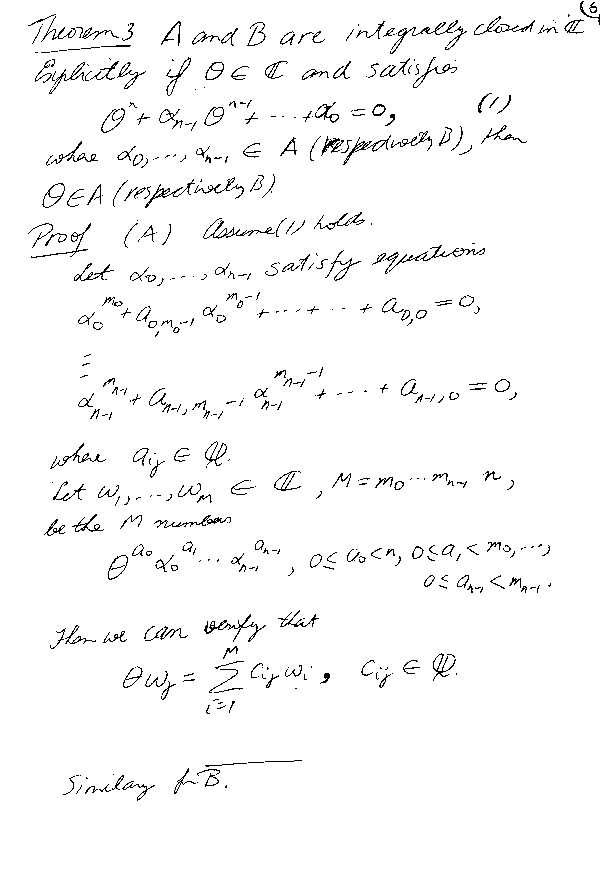 (6)
Theorem 3 A and B are integrally closed in ℂ
Explicitly if θ ∈ ℂ and satisfies
θ^n + α_{n-1} θ^{n-1} + ... + α_0 = 0, (1)
where α_0, ..., α_{n-1} ∈ A (respectively B), then
θ ∈ A (respectively B)
Proof (A) Assume (1) holds.
Let α_0, ..., α_{n-1} satisfy equations
α_0^{m_0} + a_{0,m_0-1} α_0^{m_0-1} + ... + ... + a_{0,0} = 0,
⋮
α_{n-1}^{m_{n-1}} + a_{n-1,m_{n-1}-1} α_{n-1}^{m_{n-1}-1} + ... + a_{n-1,0} = 0,
where a_{ij} ∈ ℚ.
Let w_1, ..., w_M ∈ ℂ, M = m_0 ... m_{n-1} n,
be the M numbers
θ^{a_0} α_0^{a_1} ... α_{n-1}^{a_{n-1}}, 0 ≤ a_0 < n, 0 ≤ a_1 < m_0, ...,
0 ≤ a_{n-1} < m_{n-1}.
Then we can verify that
θ w_j = Σ_{i=1}^{M} c_{ij} w_i, c_{ij} ∈ ℚ.
Similary for B.